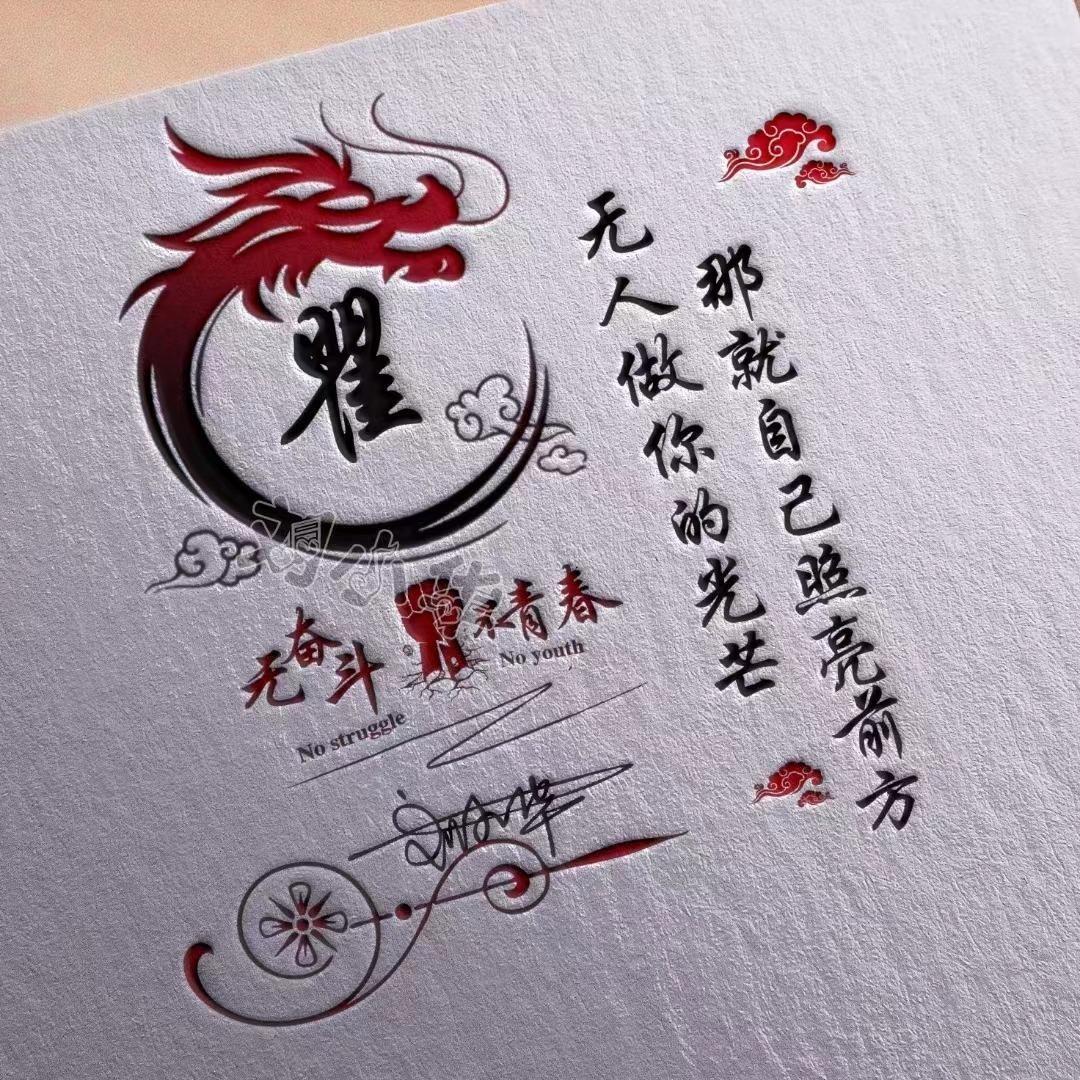 瞿
无人做你的光芒
那就自己照亮前方
无奋斗 不青春
No struggle
No youth